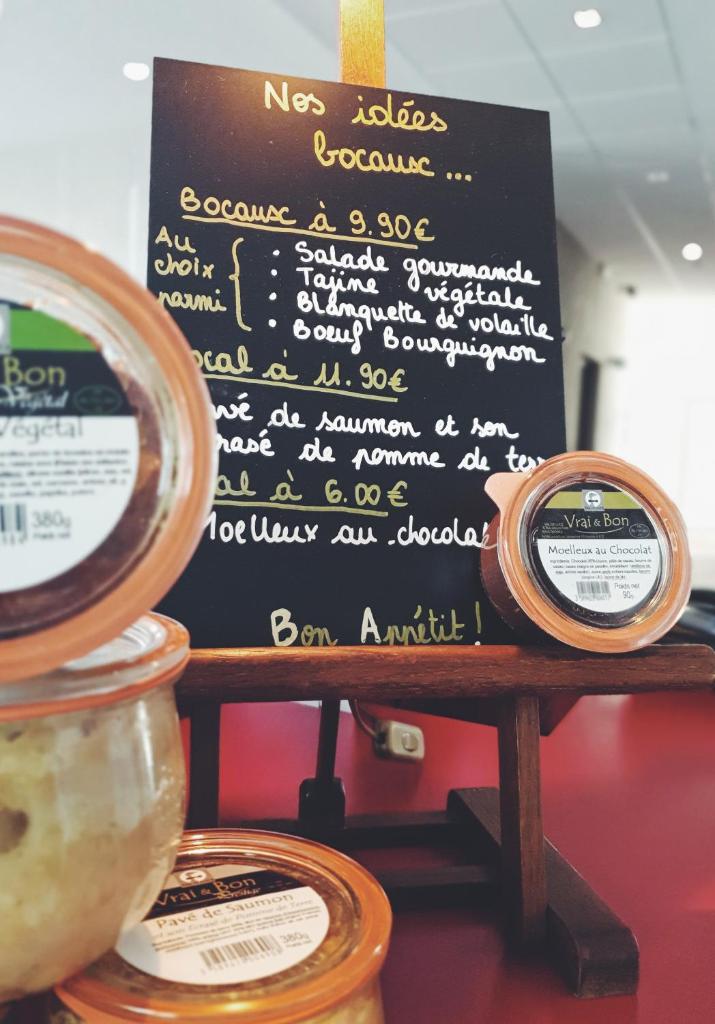 Nos idées
bocaux ...
Bocaux à 9.90€
Au choix parmi
• Salade gourmande
• Tajine végétale
• Blanquette de volaille
• Boeuf Bourguignon
ocal à 11.90€
vé de saumon et son
rasé de pomme de ter
al à 6.00€
Moelleux au chocolat
Bon Appétit !
Bon
Végétal
Végétal
380g
Vrai & Bon
Moelleux au Chocolat
Poids net
90g
Vrai & Bon
Pavé de Saumon
et son Ecrasé de Pomme de Terre
380g